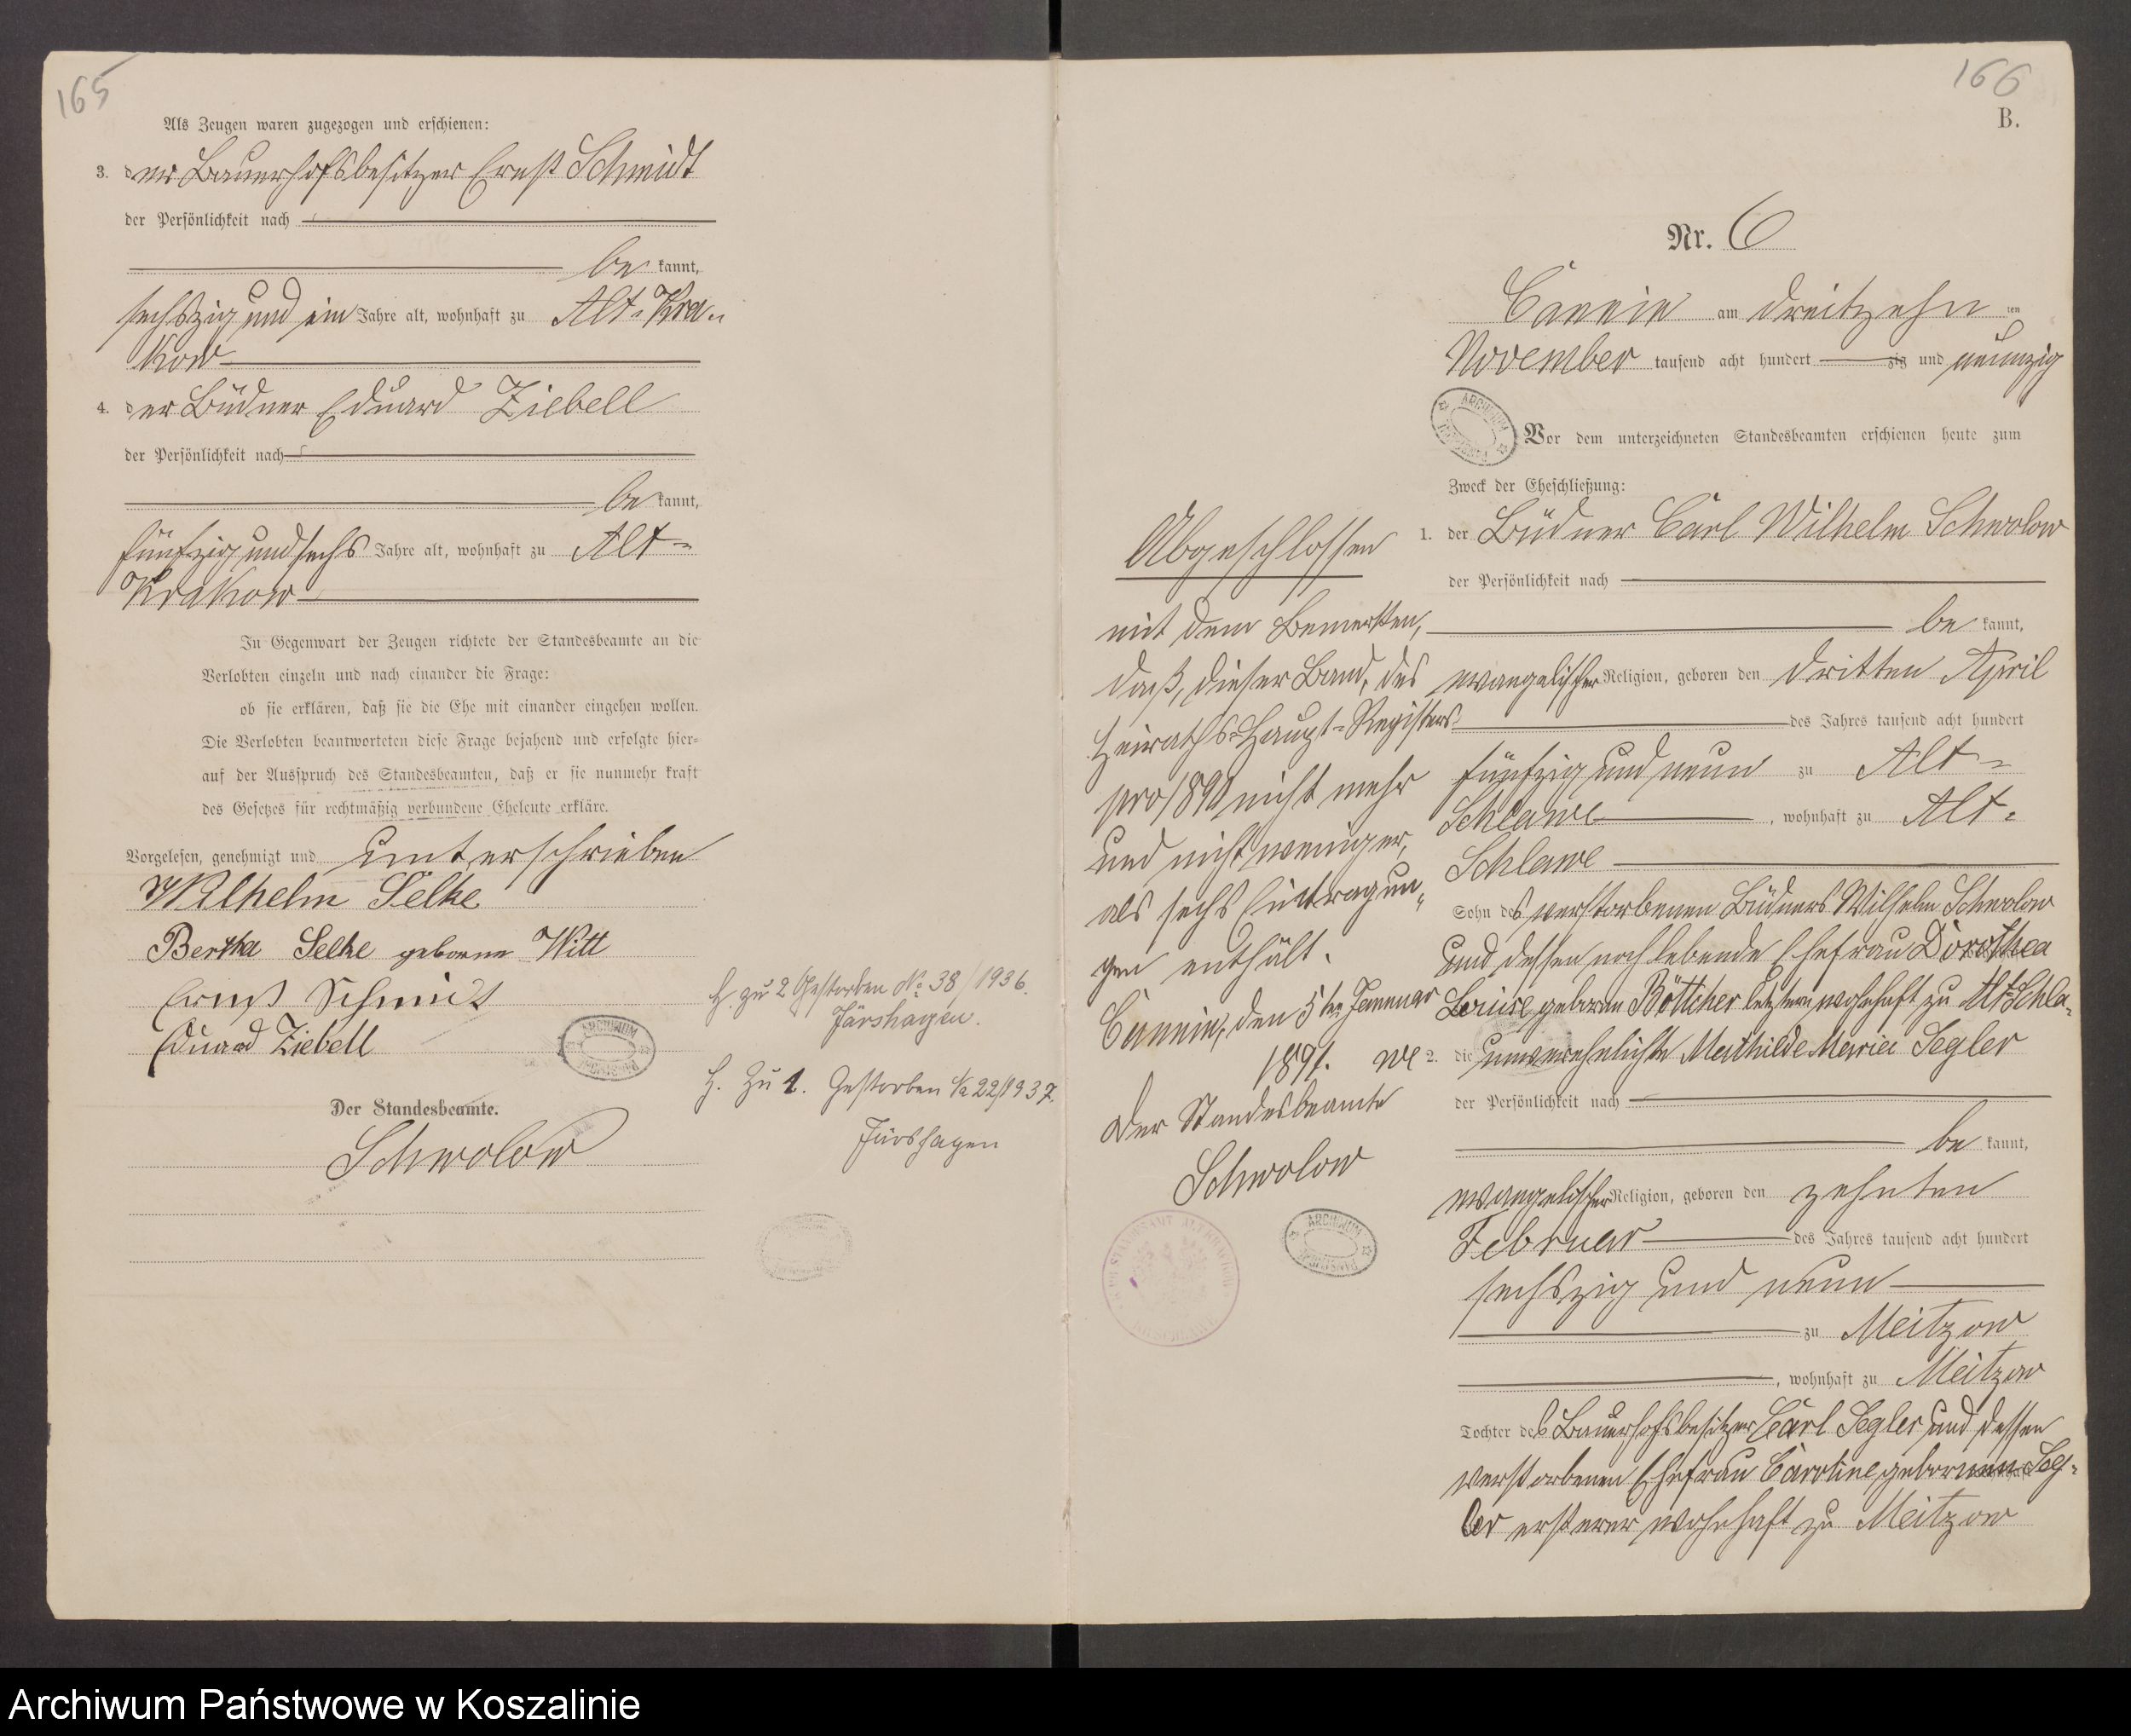 165
Als Zeugen waren zugezogen und erschienen:
3. der Bauerhofsbesitzer Ernst Schmidt
der Persönlichkeit nach
be kannt,
sechszig und ein Jahre alt, wohnhaft zu Alt-Kra-
kow
4. der Büdner Eduard Ziebell
der Persönlichkeit nach
be kannt,
fünfzig und sechs Jahre alt, wohnhaft zu Alt-
Krakow
In Gegenwart der Zeugen richtete der Standesbeamte an die
Verlobten einzeln und nach einander die Frage:
ob sie erklären, daß sie die Ehe mit einander eingehen wollen.
Die Verlobten beantworteten diese Frage bejahend und erfolgte hier-
auf der Ausspruch des Standesbeamten, daß er sie nunmehr kraft
des Gesetzes für rechtmäßig verbundene Eheleute erkläre.
Vorgelesen, genehmigt und unterschrieben
Wilhelm Selke
Bertha Selke geborene Witt
Ernst Schmidt
Eduard Ziebell
Der Standesbeamte.
Schwolow
H. zu 2 Gestorben No 38/1936.
Järshagen.
H. zu 1. Gestorben 22/1937.
Järshagen
ARCHIWUM
166
B.
Nr. 6
Cannin am dreitzehn ten
November tausend acht hundert zig und neunzig
ARCHIWUM
Vor dem unterzeichneten Standesbeamten erschienen heute zum
Zweck der Eheschließung:
1. der Büdner Carl Wilhelm Schwolow
der Persönlichkeit nach
be kannt,
evangelischer Religion, geboren den dritten April
des Jahres tausend acht hundert
fünfzig und neun zu Alt-
Schlawe, wohnhaft zu Alt-
Schlawe
Sohn des verstorbenen Büdners Wilhelm Schwolow
und dessen noch lebende Ehefrau Dorothea
Louise geboren Böttcher letztere wohnhaft zu Alt-Schla-
we 2. die unverehelichte Mathilde Maria Segler
der Persönlichkeit nach
be kannt,
evangelischer Religion, geboren den zehnten
Februar des Jahres tausend acht hundert
sechszig und neun
zu Meitzow
, wohnhaft zu Meitzow
Tochter des Bauerhofsbesitzer Carl Segler und dessen
verstorbenen Ehefrau Caroline gebornen Seg-
ler ersterer wohnhaft zu Meitzow
Abgeschlossen
mit dem Bemerken,
daß, dieser Band, des
Heiraths-Haupt-Registers
pro 1890 nicht mehr
und nicht weniger,
als sechs Eintragun-
gen enthält.
Cannin, den 5ten Januar
1891.
Der Standesbeamte
Schwolow
ARCHIWUM
Archiwum Państwowe w Koszalinie